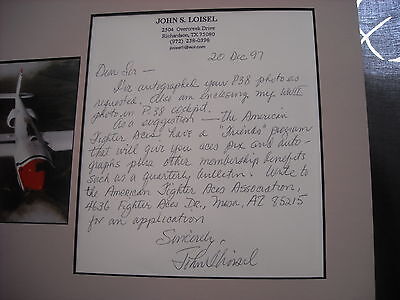 JOHN S. LOISEL
2504 Overcreek Drive
Richardson, TX 75080
(972) 238-0398
20 Dec 97
Dear Sir —
I've autographed your P38 photo as
requested. Also am enclosing my WWII
photo in P-38 cockpit.
As a suggestion — the American
Fighter Aces have a "Friends" program
that will give you aces pix and auto-
graphs plus other membership benefits
such as a quarterly bulletin. Write to
to the American Fighter Aces Association,
4636 Fighter Aces Dr., Mesa, AZ 85215
for an application
Sincerely,
John S Loisel